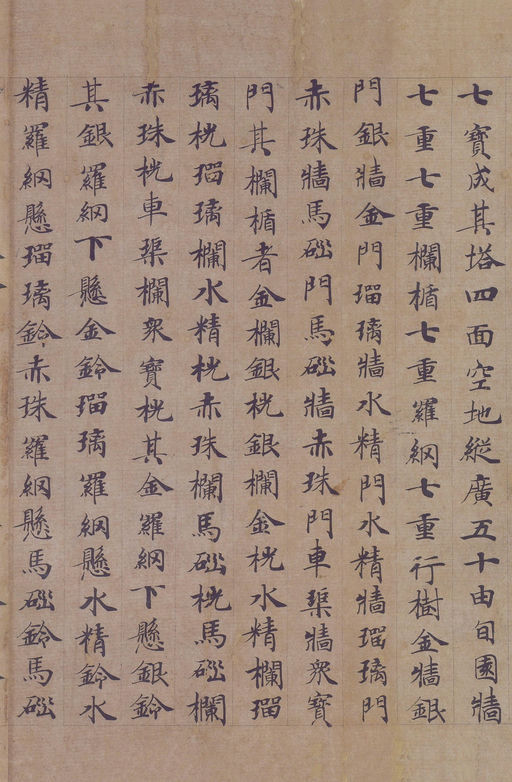 七寶成其塔四面空地縱廣五十由旬園牆
七重七重欄楯七重羅網七重行樹金牆銀
門銀牆金門瑠璃牆水精門水精牆瑠璃門
赤珠牆馬碯門馬碯牆赤珠門車𤦲牆衆寶
門其欄楯者金欄銀桄銀欄金桄水精欄瑠
璃桄瑠璃欄水精桄赤珠欄馬碯桄馬碯欄
赤珠桄車𤦲欄衆寶桄其金羅網下懸銀鈴
其銀羅網下懸金鈴瑠璃羅網懸水精鈴水
精羅網懸瑠璃鈴赤珠羅網懸馬碯鈴馬碯